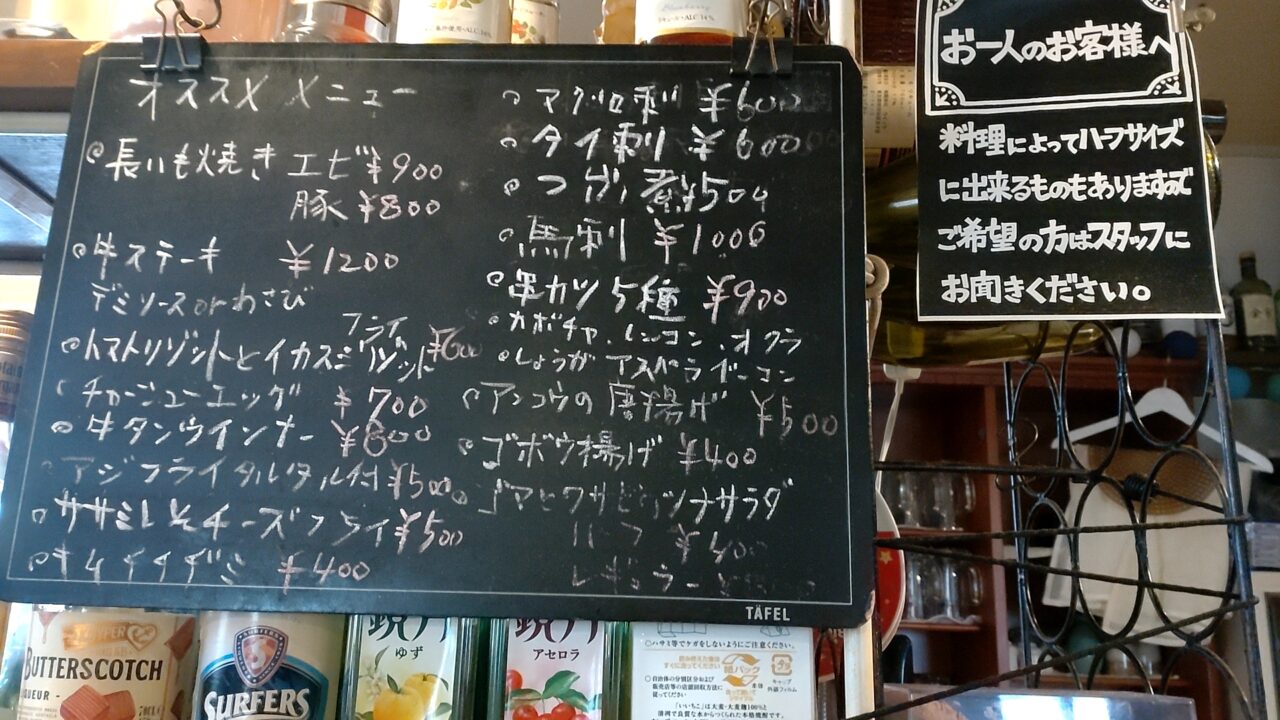 オススメ メニュー
長いも焼き エビ ¥900
豚 ¥800
牛ステーキ ¥1200
デミソース or わさび
フライ
トマトリゾットとイカスミリゾット ¥600
チャーシューエッグ ¥700
牛タンウインナー ¥800
アジフライタルタル付 ¥500
ササミしそチーズフライ ¥500
キムチチヂミ ¥400
マグロ刺 ¥600
タイ刺 ¥600
つぶ煮 ¥500
馬刺 ¥1000
串カツ5種 ¥900
カボチャ、レンコン、オクラ
しょうが アスパラベーコン
アンコウの唐揚げ ¥500
ゴボウ揚げ ¥400
ゴマとワサビのツナサラダ
ハーフ ¥400
レギュラー
TÄFEL
お一人のお客様へ
料理によってハーフサイズ
に出来るものもありますので
ご希望の方はスタッフに
お聞きください。
BUTTERSCOTCH
SURFERS
ゆず
アセロラ
ハサミ等でケガをしないようにご注意ください。
紙パック
「いいちこ」は大麦・大麦麹100%と